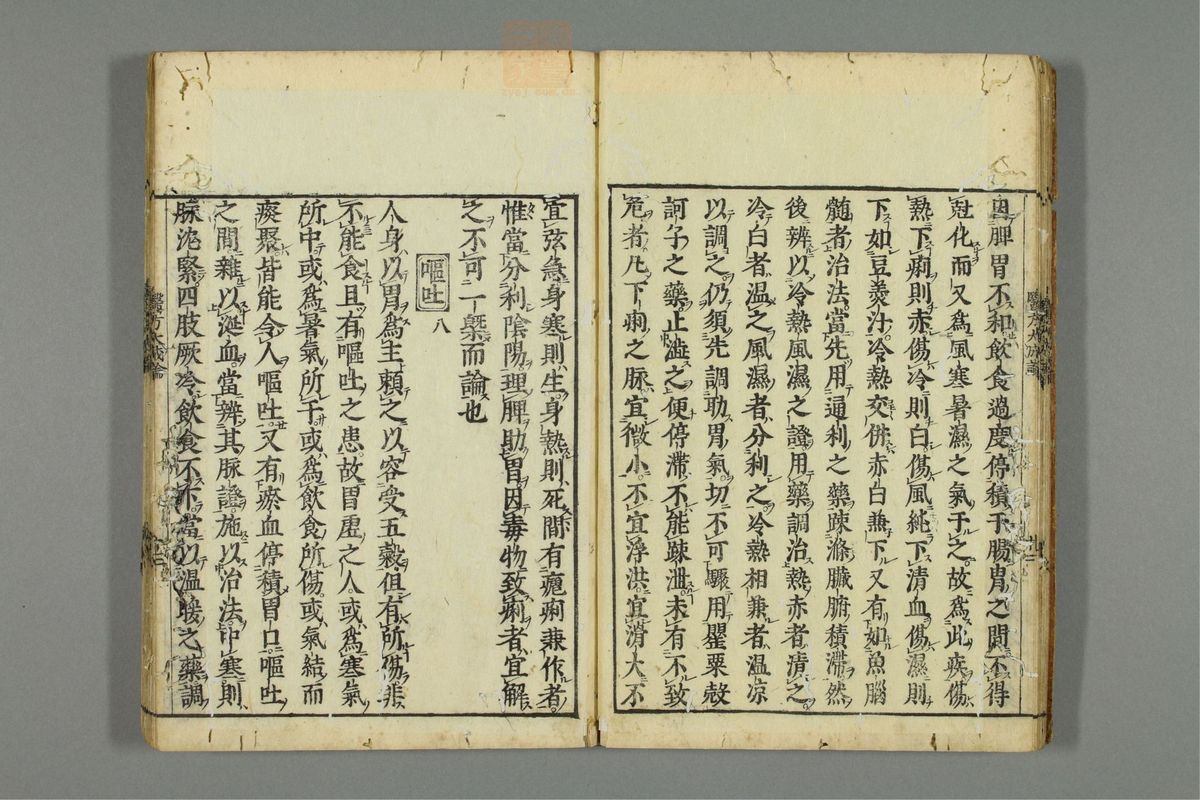 因脾胃不和飲食過度停積于腸胃之間不得
尅化而又爲風寒暑濕之氣干之故爲此疾傷
熱下痢則赤傷冷則白傷風純下清血傷濕則
下如豆羹汁冷熱交併赤白兼下又有如魚腦
髓者治法當先用通利之藥疎滌臟腑積滯然
後辨以冷熱風濕之證用藥調治熱赤者清之
冷白者温之風濕者分利之冷熱相兼者温凉
以調之仍須先調助胃氣切不可驟用罌粟殼
訶子之藥止澁之便停滯不能疎泄未有不致
危者凡下痢之脉宜微小不宜浮洪宜滑大不
宜弦急身寒則生身熱則死間有瘧痢兼作者
惟當分利陰陽理脾助胃因毒物致痢者宜解
之不可一槩而論也
嘔吐 八
人身以胃爲主頼之以容受五穀但有所傷非
不能食且有嘔吐之患故胃虚之人或爲寒氣
所中或爲暑氣所干或爲飲食所傷或氣結而
痰聚皆能令人嘔吐又有瘀血停積胃口嘔吐
之間雜以涎血當辨其脉證施以治法中寒則
脉沈緊四肢厥冷飲食不下當以温暖之藥調
醫方大成論